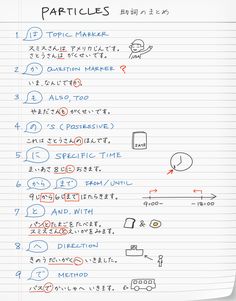 PARTICLES 助詞のまとめ
1 は TOPIC MARKER
スミスさんは アメリカじんです。
さとうさんは がくせいです。
2 か QUESTION MARKER ?
いま、なんじですか。
3 も ALSO, TOO
やまださんも がくせいです。
4 の 'S (POSSESSIVE)
これは さとうさんの ほんです。
5 に SPECIFIC TIME
まいあさ 8じに おきます。
6 から まで FROM/UNTIL
9じから 6じまで はたらきます。
9:00~ ~18:00
7 と AND, WITH
パンと たまごを たべます。
スミスさんと えいがをみます。
8 へ DIRECTION
きのう だいがくへ いきました。
9 で METHOD
バスで かいしゃへ いきます。